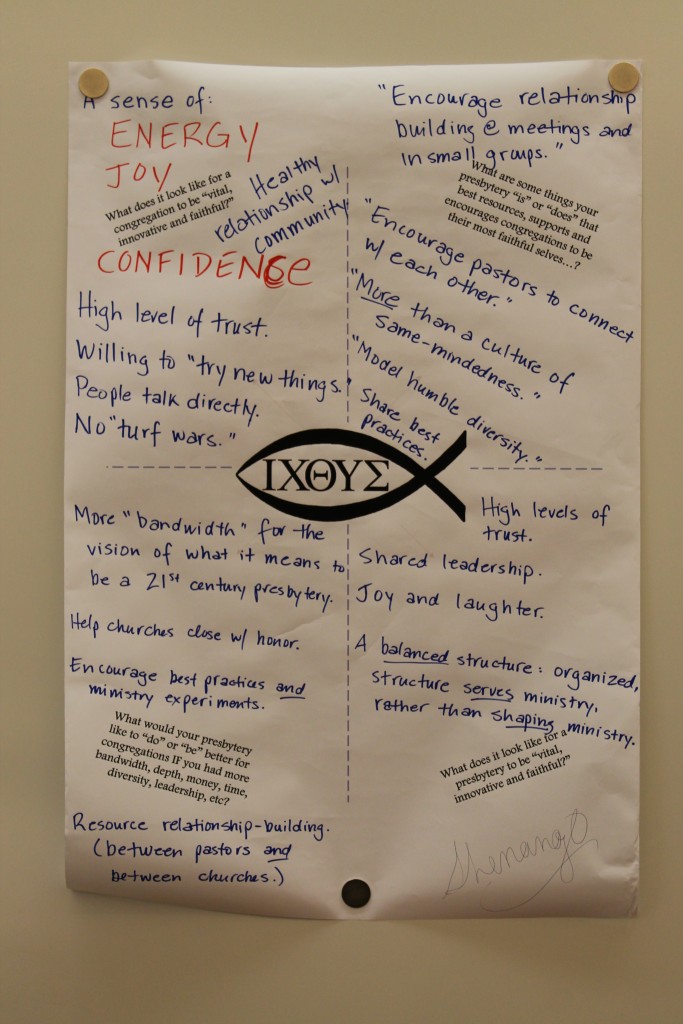 A sense of:
ENERGY
JOY
What does it look like for a
congregation to be "vital,
innovative and faithful?"
Healthy
relationship w/
community
CONFIDENCE
High level of trust.
Willing to "try new things."
People talk directly.
No "turf wars."
"Encourage relationship
building @ meetings and
in small groups."
What are some things your
presbytery "is" or "does" that
best resources, supports and
encourages congregations to be
their most faithful selves...?
"Encourage pastors to connect
w/ each other."
"More than a culture of
same-mindedness."
"Model humble diversity."
Share best
practices.
ΙΧΘΥΣ
More "bandwidth" for the
vision of what it means to
be a 21st century presbytery.
Help churches close w/ honor.
Encourage best practices and
ministry experiments.
What would your presbytery
like to "do" or "be" better for
congregations IF you had more
bandwidth, depth, money, time,
diversity, leadership, etc?
Resource relationship-building.
(between pastors and
between churches.)
High levels of
trust.
Shared leadership.
Joy and laughter.
A balanced structure: organized,
structure serves ministry,
rather than shaping ministry.
What does it look like for a
presbytery to be "vital,
innovative and faithful?"
Shenango